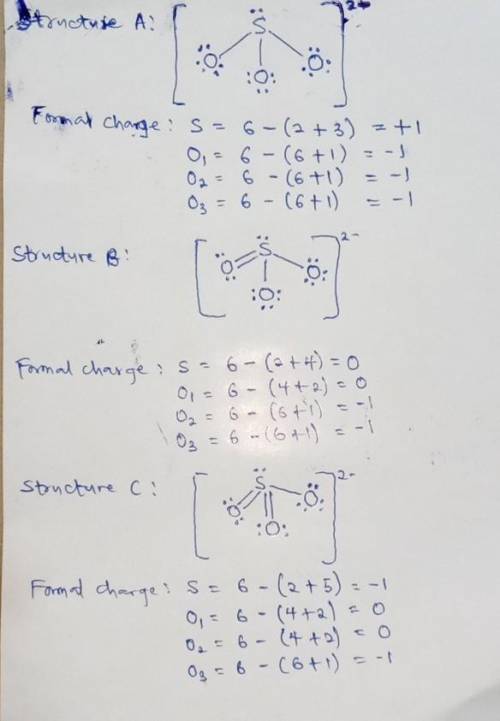 Structure A: [ S O O O ]2-
Formal charge: S = 6 - (2 + 3) = +1
O1 = 6 - (6+1) = -1
O2 = 6 - (6+1) = -1
O3 = 6 - (6+1) = -1
Structure B: [ O = S O O ]2-
Formal charge: S = 6 - (2+4) = 0
O1 = 6 - (4+2) = 0
O2 = 6 - (6+1) = -1
O3 = 6 - (6+1) = -1
Structure C: [ S O O O ]2-
Formal charge: S = 6 - (2+5) = -1
O1 = 6 - (4+2) = 0
O2 = 6 - (4+2) = 0
O3 = 6 - (6+1) = -1